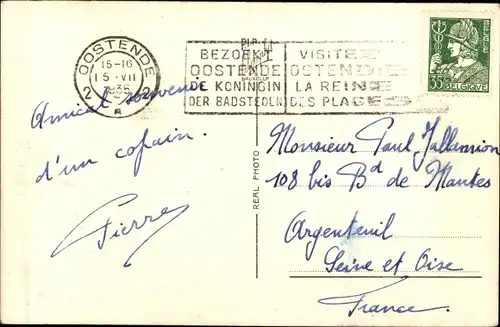 OOSTENDE
15-16
5 VII
1935
2 2
B
BEZOEKT
OOSTENDE
DE KONINGIN
DER BADSTEDEN
VISITE
OSTENDE
LA REINE
DES PLAGES
35c BELGIQUE
Amical souvenir
d'un copain.
Pierre
REAL PHOTO
Monsieur Paul
108 bis Bd de Mantes
Argenteuil
Seine et Oise
France.